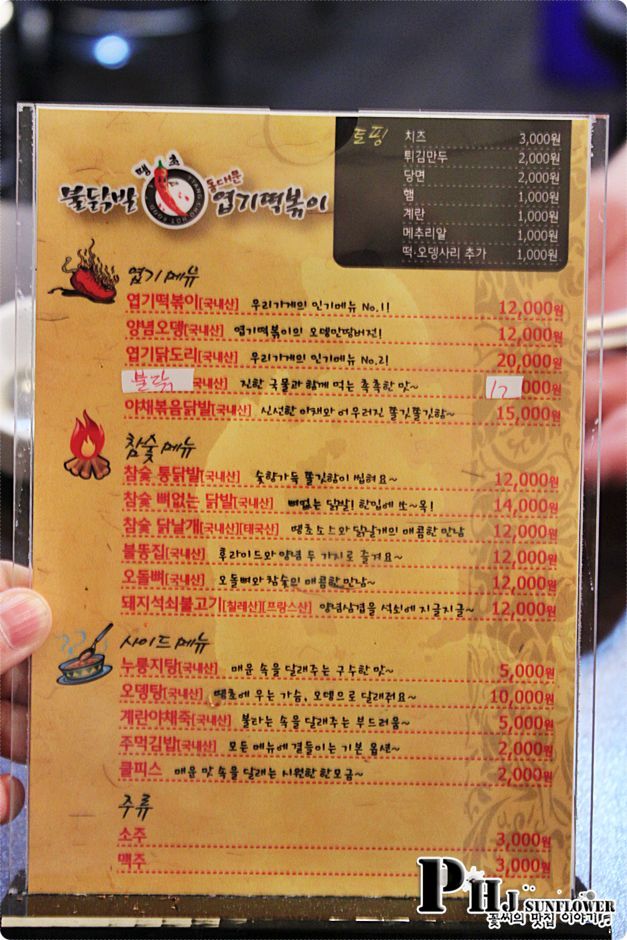 땡초
불닭발
동대문
엽기떡볶이
토핑
치즈 3,000원
튀김만두 2,000원
당면 2,000원
햄 1,000원
계란 1,000원
메추리알 1,000원
떡·오뎅사리 추가 1,000원
엽기 메뉴
엽기떡볶이[국내산] 우리가게의 인기메뉴 No.1! 12,000원
양념오뎅[국내산] 엽기떡볶이의 오뎅만땅버전! 12,000원
엽기닭도리[국내산] 우리가게의 인기메뉴 No.2! 20,000원
불닭 국내산] 진한 국물과 함께 먹는 촉촉한 맛~ 12 000원
야채볶음닭발[국내산] 신선한 야채와 어우러진 쫄깃쫄깃함~ 15,000원
참숯 메뉴
참숯 통닭발[국내산] 숯향가득 쫄깃함이 씹혀요~ 12,000원
참숯 뼈없는 닭발[국내산] 뼈없는 닭발! 한입에 쏘~옥! 14,000원
참숯 닭날개[국내산][태국산] 땡초소스와 닭날개의 매콤한 만남 12,000원
불똥집[국내산] 후라이드와 양념 두 가지로 즐겨요~ 12,000원
오돌뼈[국내산] 오돌뼈와 참숯의 매콤한 만남~ 12,000원
돼지석쇠불고기[칠레산][프랑스산] 양념삼겹을 석쇠에 지글지글~ 12,000원
사이드 메뉴
누룽지탕[국내산] 매운 속을 달래주는 구수한 맛~ 5,000원
오뎅탕[국내산] 땡초에 우는 가슴, 오뎅으로 달래줘요~ 10,000원
계란야채죽[국내산] 불타는 속을 달래주는 부드러움~ 5,000원
주먹김밥[국내산] 모든 메뉴에 곁들이는 기본 옵션~ 2,000원
쿨피스 매운 맛 속을 달래는 시원한 한모금~ 2,000원
주류
소주 3,000원
맥주 3,000원
PHJ SUNFLOWER
꽃씨의 맛집 이야기